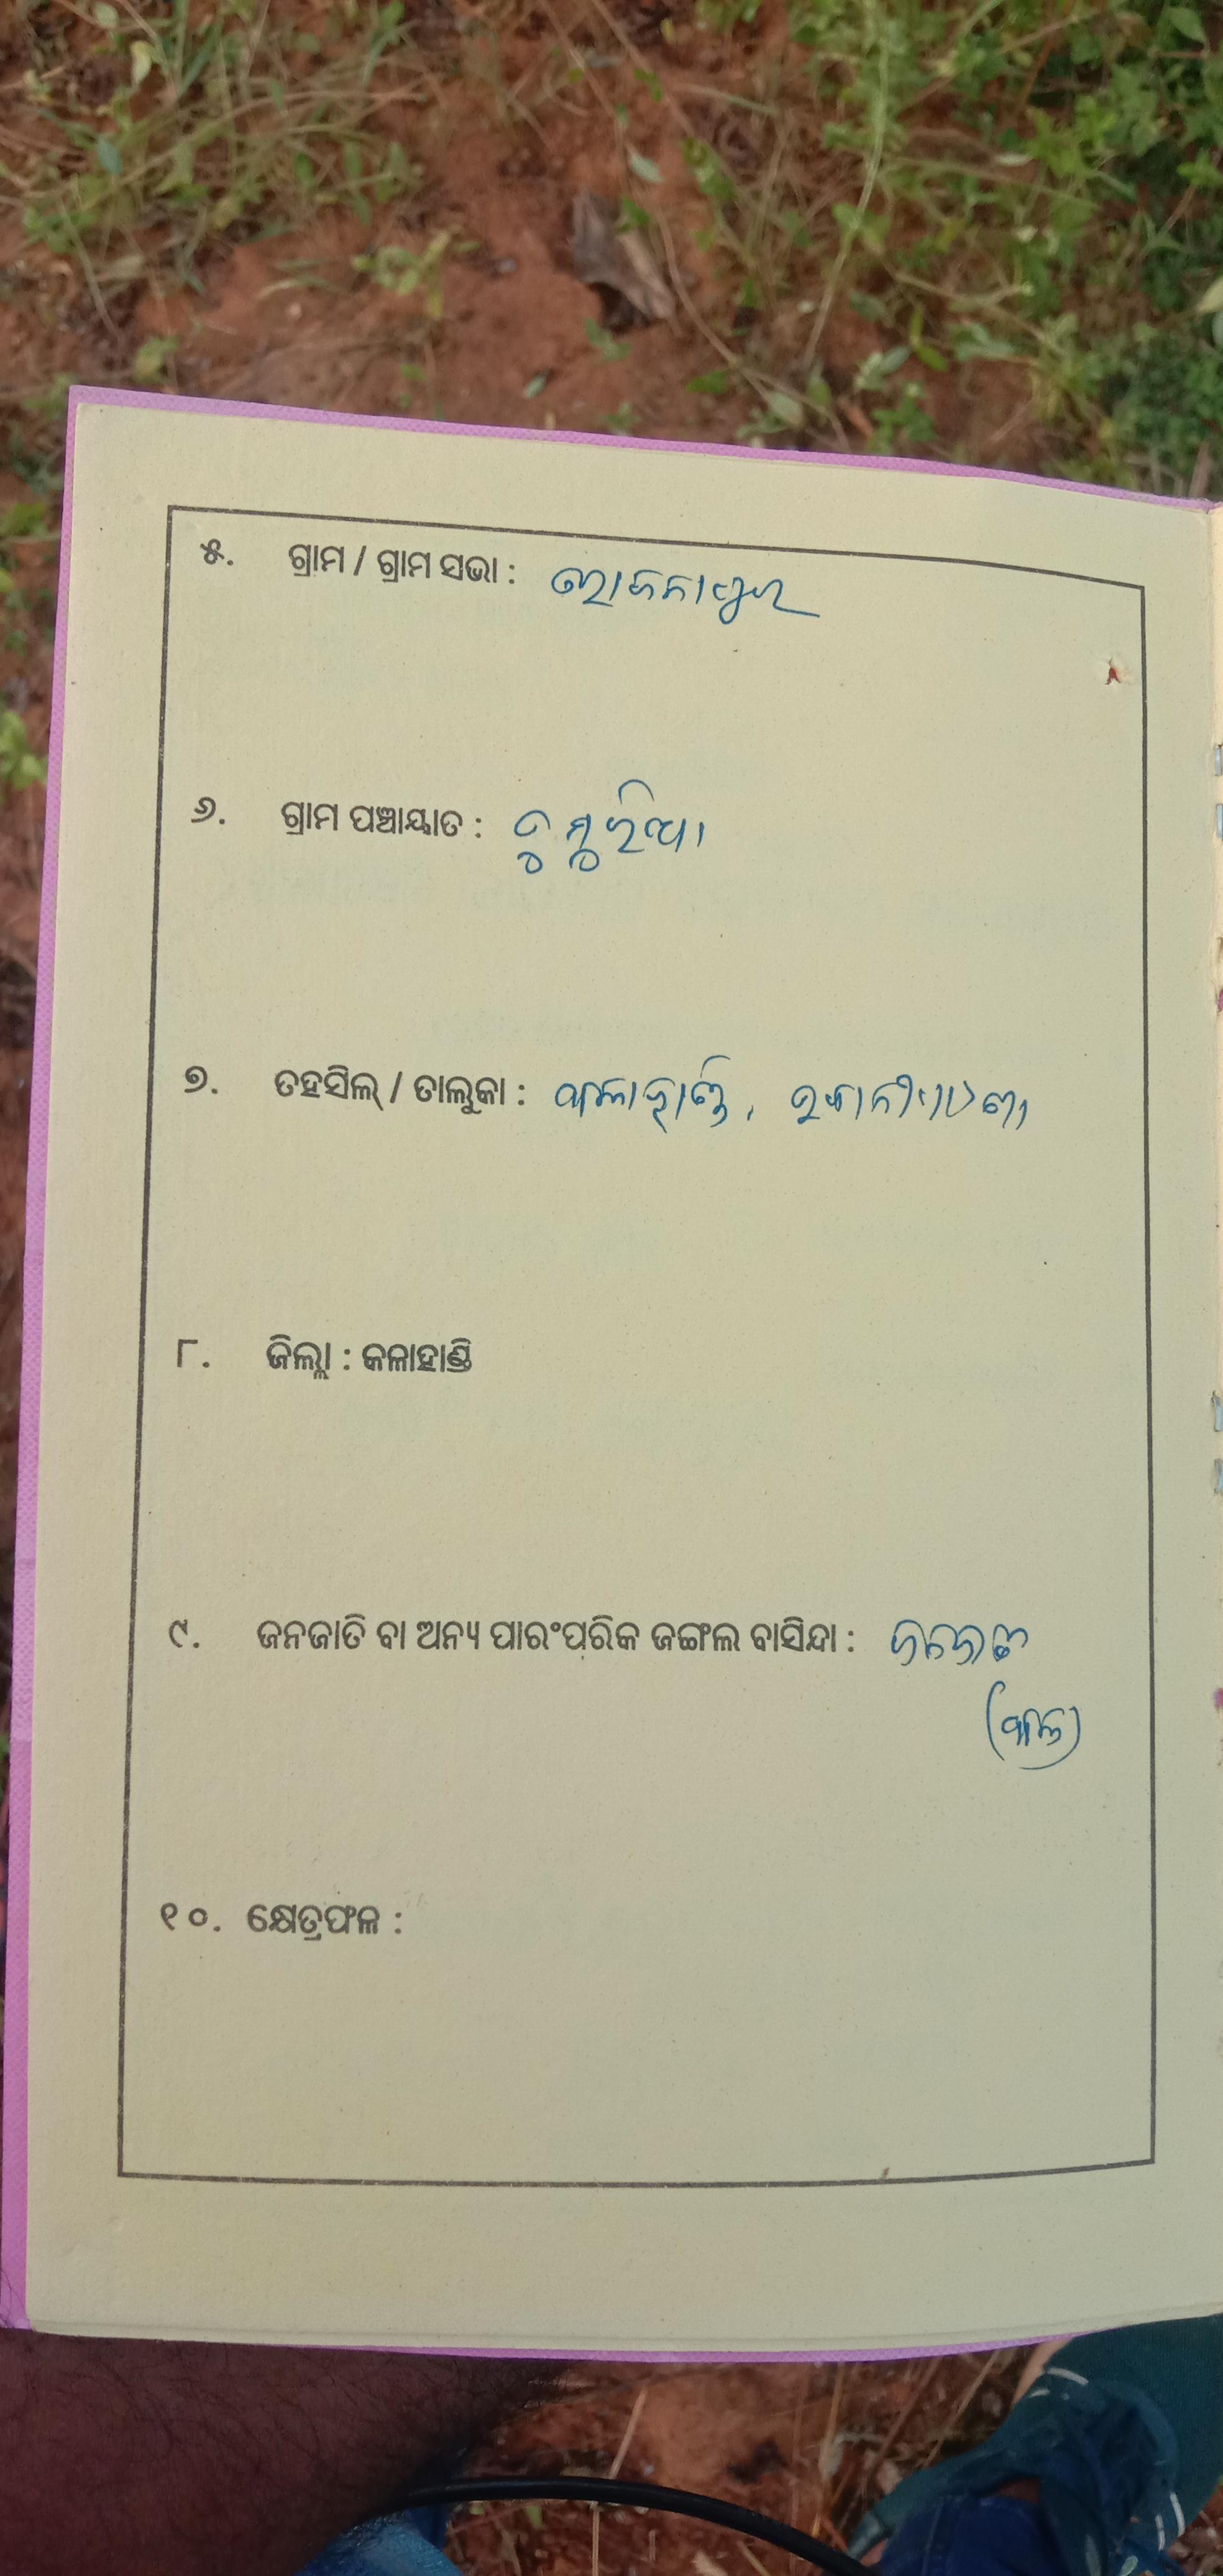 ୫. ଗ୍ରାମ / ଗ୍ରାମ ସଭା :
୬. ଗ୍ରାମ ପଞ୍ଚାୟାତ : ଡୁମୁରିଆ
୭. ତହସିଲ୍ / ତାଲୁକା : କଳାହାଣ୍ଡି, ଭବାନୀପାଟଣା
୮. ଜିଲ୍ଲା : କଳାହାଣ୍ଡି
୯. ଜନଜାତି ବା ଅନ୍ୟ ପାରଂପରିକ ଜଙ୍ଗଲ ବାସିନ୍ଦା :
୧୦. କ୍ଷେତ୍ରଫଳ :